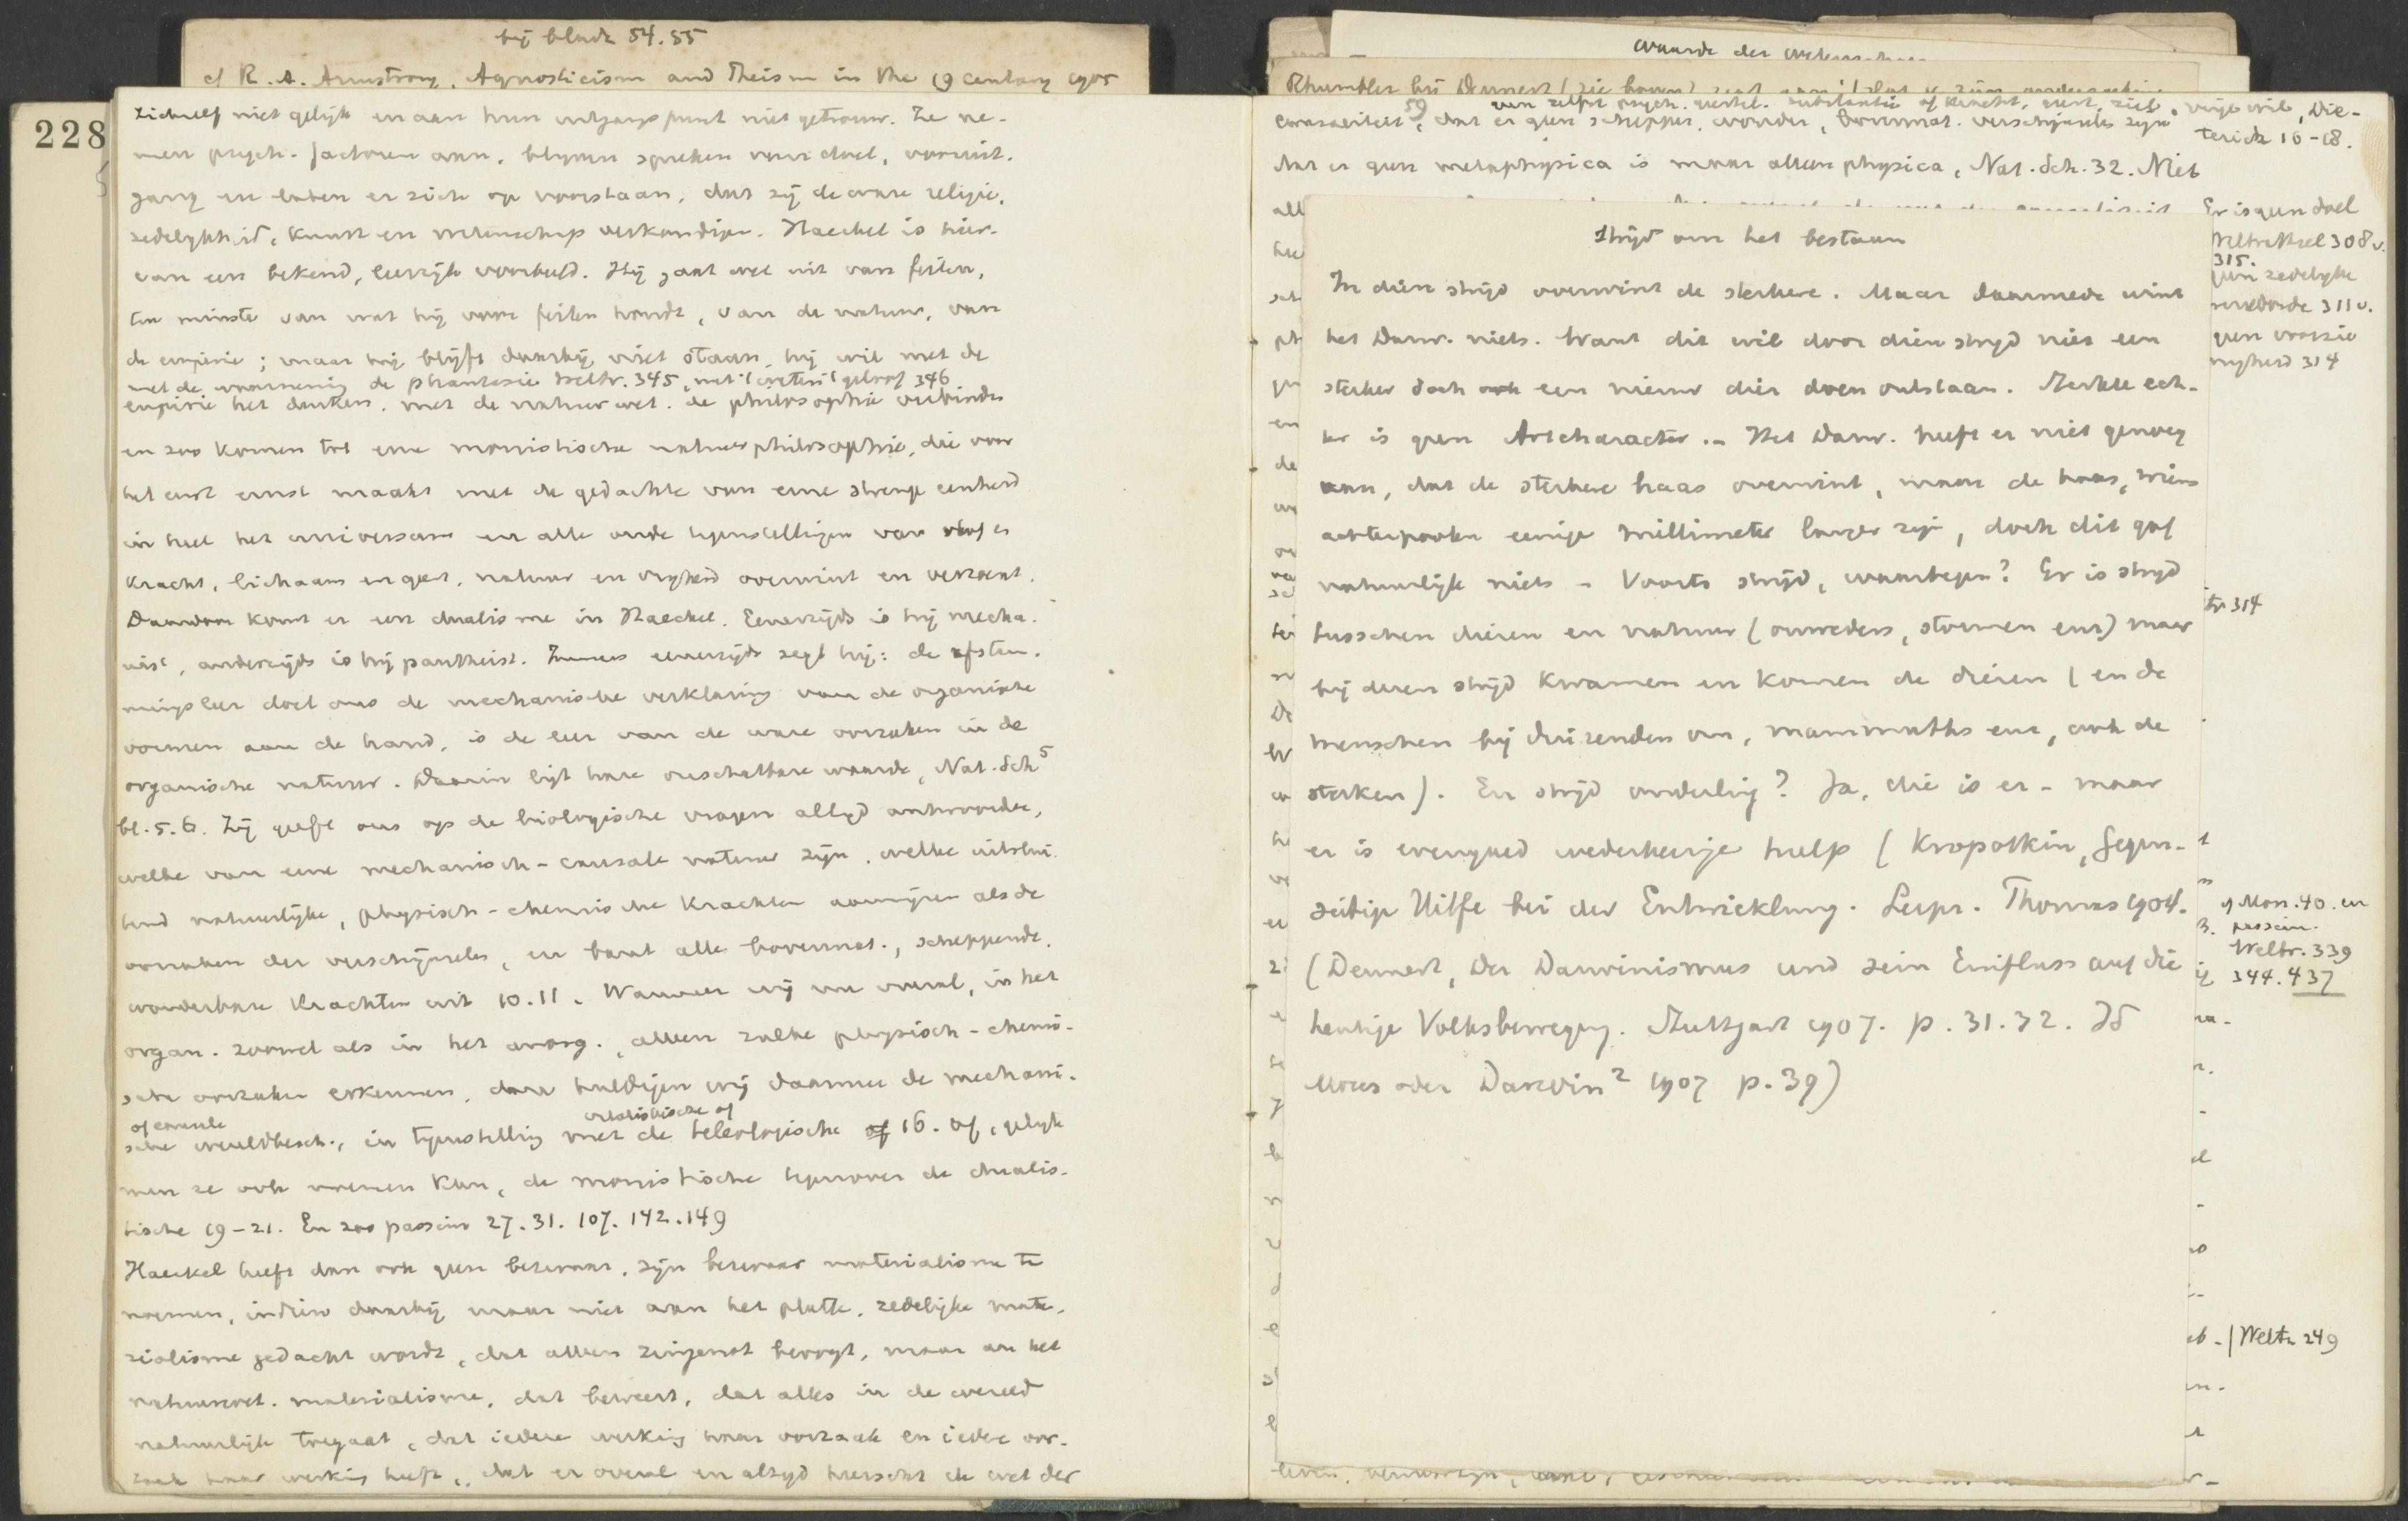 bij bladz 54.55
cf R. A. Armstrong, Agnosticism and Theism in the 19 century 1905
228
zichzelf niet gelijk en aan hun uitgangspunt niet getrouw. Ze ne-
men psych. factoren aan, blijven spreken van doel, vooruit-
gang en laten er zich op voorstaan, dat zij de ware religie,
zedelijkheid, kunst en wetenschap verkondigen. Haeckel is hier-
van een bekend, leerrijk voorbeeld. Hij gaat wel uit van feiten,
ten minste van wat hij voor feiten houdt, van de natuur, van
de empirie; maar hij blijft daarbij niet staan, hij wil met de
met de waarneming de phantasie Weltr. 345, met 't weten 't geloof 346
empirie het denken, met de natuurwet. de philosophie verbinden
en zoo komen tot eene monistische natuurphilosophie, die voor
het eerst ernst maakt met de gedachte van eene strenge eenheid
in heel het universum en alle oude tegenstellingen van stof en
kracht, lichaam en geest, natuur en vrijheid overwint en verzoent.
Daardoor komt er een dualisme in Haeckel. Eenerzijds is hij mecha-
nist, anderzijds is hij pantheist. Immers eenerzijds zegt hij: de afstam-
mingsleer doet ons de mechanische verklaring van de organische
vormen aan de hand, is de leer van de ware oorzaken in de
organische natuur. Daarin ligt hare onschatbare waarde, Nat. Sch 5
bl. 5.6. Zij geeft ons op de biologische vragen altijd antwoorden,
welke van eene mechanisch-causale natuur zijn, welke uitslui-
tend natuurlijke, physisch-chemische krachten aanwijzen als de
oorzaken der verschijnselen, en bant alle bovennat., scheppende,
wonderbare krachten uit 10.11. Wanneer wij nu overal, in het
organ. zoowel als in het anorg., alleen zulke physisch-chemi-
sche oorzaken erkennen, dan huldigen wij daarmee de mechani-
of causale
vitalistische of
sche wereldbesch., in tegenstelling met de teleologische of 16. Of, gelijk
men ze ook noemen kan, de monistische tegenover de dualis-
tische 19-21. En zoo passim 27. 31. 107. 142. 149
Haeckel heeft dan ook geen bezwaar, zijn materialisme te
noemen, indien daarbij maar niet aan het platte, zedelijke mate-
rialisme gedacht wordt, dat alleen zingenot beoogt, maar aan het
natuurwet. materialisme, dat beweert, dat alles in de wereld
natuurlijk toegaat, dat iedere werking haar oorzaak en iedere oor-
zaak haar werking heeft, dat er overal en altijd heerscht de wet der
waarde der
Rhumbler bij Dennert (zie boven) zegt
59
causaliteit, dat er geen schepper, wonder, bovennat. verschijnselen zijn, vrije wil, Die-
terich 16-18.
dat er geen metaphysica is maar alleen physica, Nat. Sch. 32. Niet
Er is geen doel
Weltrathsel 308 v.
315.
geen zedelijke
wereldorde 311 v.
geen voorzie
nigheid 314
Strijd om het bestaan
In dien strijd overwint de sterkere. Maar daarmede wint
het Darw. niets. Want dit wil door dien strijd niet een
sterker doch ook een nieuw dier doen ontstaan. Sterkte ech-
ter is geen Artcharacter. - Het Darw. heeft er niet genoeg
aan, dat de sterkere haas overwint, maar de haas, wiens
achterpooten eenige millimeter langer zijn, doch dit gaf
natuurlijk niets - Voorts strijd, waartegen? Er is strijd
tusschen dieren en natuur (onweders, stormen enz) maar
bij dezen strijd kwamen en komen de dieren (en de
menschen bij duizenden om, mammuths enz, ook de
sterken). En strijd onderling? Ja, die is er - maar
er is evengoed wederkeerige hulp (Kropotkin, Gegen-
seitige Hilfe bei der Entwicklung. Leipz. Thomas 1904.
(Dennert, Der Darwinismus und sein Einfluss auf die
heutige Volksbewegung. Stuttgart 1907. p. 31.32. Id
Moses oder Darwin 2 1907 p. 39)
tr 314
cf Mon. 40. en
passim.
Weltr. 339
344. 437
Weltr 249